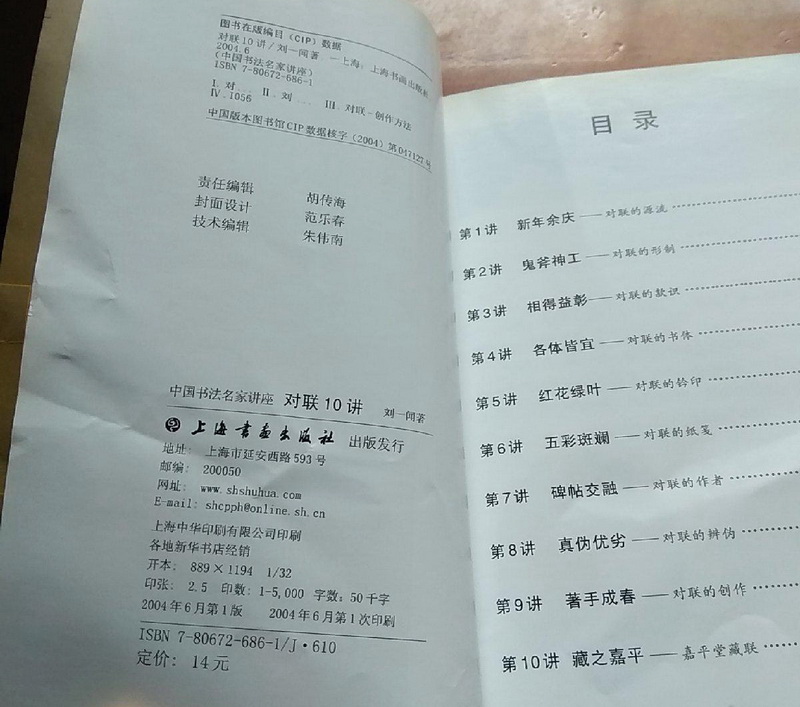 图书在版编目（CIP）数据
对联10讲/刘一闻著．—上海：上海书画出版社，
2004.6
（中国书法名家讲座）
ISBN 7-80672-686-1
Ⅰ.对… Ⅱ.刘… Ⅲ.对联-创作方法
Ⅳ.J056
中国版本图书馆CIP数据核字（2004）第047127号
责任编辑 胡传海
封面设计 范乐春
技术编辑 朱伟南
中国书法名家讲座 对联10讲 刘一闻著
上海书画出版社 出版发行
地址： 上海市延安西路593号
邮编： 200050
网址： www.shshuhua.com
E-mail: shcpph@online.sh.cn
上海中华印刷有限公司印刷
各地新华书店经销
开本： 889×1194 1/32
印张： 2.5 印数： 1-5,000 字数： 50千字
2004年6月第1版 2004年6月第1次印刷
ISBN 7-80672-686-1/J·610
定价： 14元
目录
第1讲 新年余庆——对联的源流
第2讲 鬼斧神工——对联的形制
第3讲 相得益彰——对联的款识
第4讲 各体皆宜——对联的书体
第5讲 红花绿叶——对联的钤印
第6讲 五彩斑斓——对联的纸笺
第7讲 碑帖交融——对联的作者
第8讲 真伪优劣——对联的辨伪
第9讲 著手成春——对联的创作
第10讲 藏之嘉平——嘉平堂藏联